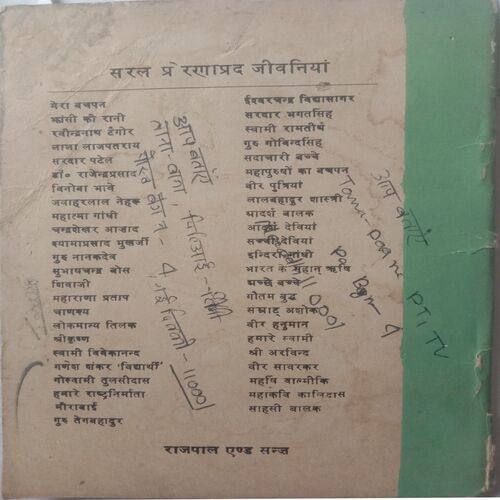 सरल प्रेरणाप्रद जीवनियां
मेरा बचपन
झांसी की रानी
रवीन्द्रनाथ टैगोर
लाला लाजपतराय
सरदार पटेल
डॉ० राजेन्द्रप्रसाद
विनोबा भावे
जवाहरलाल नेहरू
महात्मा गांधी
चन्द्रशेखर आज़ाद
श्यामाप्रसाद मुखर्जी
गुरु नानकदेव
सुभाषचन्द्र बोस
शिवाजी
महाराणा प्रताप
चाणक्य
लोकमान्य तिलक
श्रीकृष्ण
स्वामी विवेकानन्द
गणेश शंकर 'विद्यार्थी'
गोस्वामी तुलसीदास
हमारे राष्ट्रनिर्माता
मीराबाई
गुरु तेगबहादुर
ईश्वरचन्द्र विद्यासागर
सरदार भगतसिंह
स्वामी रामतीर्थ
गुरु गोविन्दसिंह
सदाचारी बच्चे
महापुरुषों का बचपन
वीर पुत्रियां
लालबहादुर शास्त्री
आदर्श बालक
आदर्श देवियां
सच्ची देवियां
इन्दिरा गांधी
भारत के महान् ऋषि
अच्छे बच्चे
गौतम बुद्ध
सम्राट् अशोक
वीर हनुमान
हमारे स्वामी
श्री अरविन्द
वीर सावरकर
महर्षि वाल्मीकि
महाकवि कालिदास
साहसी बालक
राजपाल एण्ड सन्ज़
आप बताएँ
ताना-बाना,
पो० बॉ० न० 4, नई दिल्ली - 110001
आप बताएँ
Tana-baana PTI TV
110001